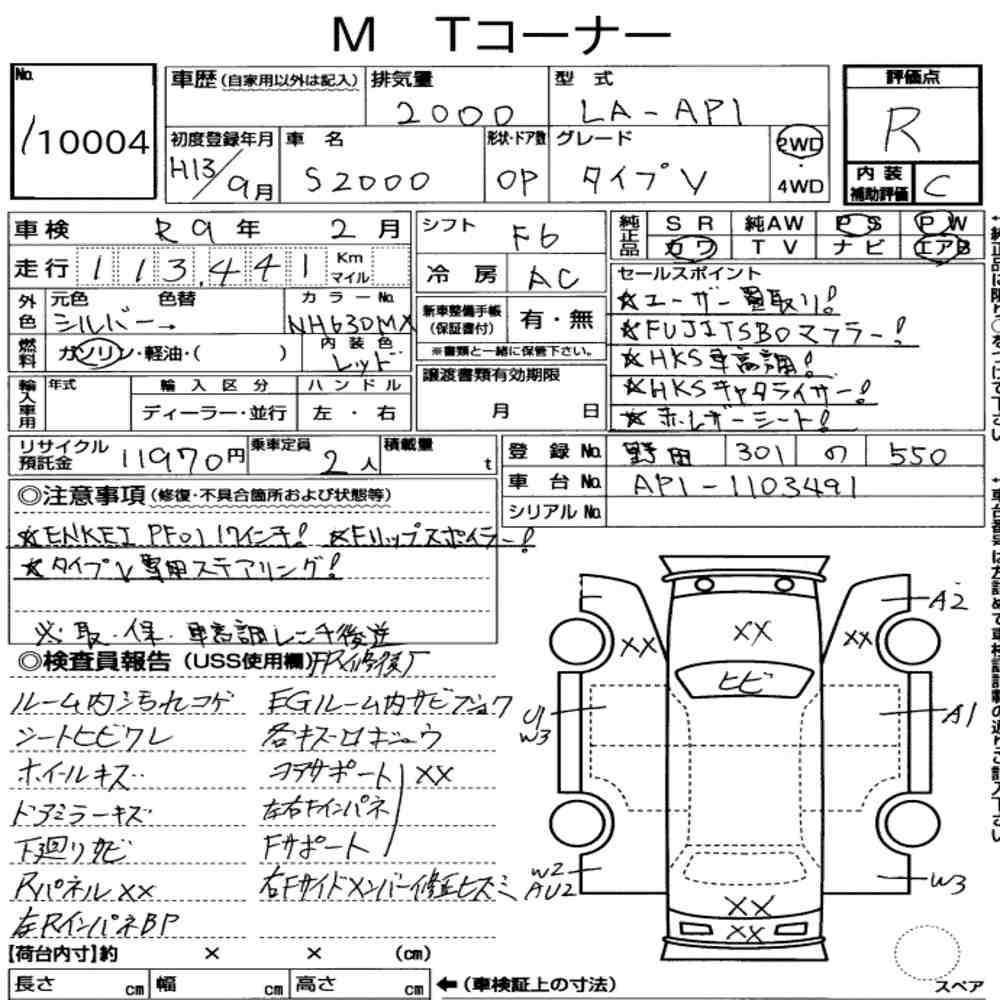 M Tコーナー
No.
110004
車歴(自家用以外は記入)
排気量
2000
型式
LA-AP1
評価点
R
初度登録年月
H13/9月
車名
S2000
形状・ドア数
OP
グレード
タイプV
2WD
・
4WD
内装
補助評価
C
車検 R9年 2月
走行 113,441 Km マイル
シフト F6
冷房 AC
純正品
SR 純AW PS PW
カワ TV ナビ エアB
セールスポイント
☆ユーザー買取り!
☆FUJITSBOマフラー!
☆HKS車高調!
☆HKSキャタライザー!
☆赤レザーシート!
外色
元色 色替
シルバー→
カラーNo.
NH630MX
燃料
ガソリン・軽油・( )
内装色
レッド
新車整備手帳
(保証書付)
有・無
※書類と一緒に保管下さい。
譲渡書類有効期限
月 日
輸入車用
年式
輸入区分
ディーラー・並行
ハンドル
左・右
リサイクル預託金 11970円
乗車定員 2人
積載量 t
登録No. 野田 301 の 550
車台No. AP1-1103491
シリアルNo.
◎注意事項(修復・不具合箇所および状態等)
☆ENKEI PF01 17インチ! ☆Fリップスポイラー!
☆タイプV専用ステアリング!
※取・保・車高調レンチ後送
◎検査員報告(USS使用欄)
ルーム内シミ汚れコゲ
シートヒビワレ
ホイールキズ
ドアミラーキズ
下廻りサビ
Rパネル××
左RインパネBP
EGルーム内サビフショク
各キズ
コアサポート
左右Fインパネ
Fサポート
××
右Fサイドメンバー修正ヒズミ
A2
××
××
××
ヒビ
U1
W3
A1
W2
AU2
W3
××
××
スペア
【荷台内寸】約 × × (cm)
長さ cm 幅 cm 高さ cm
←(車検証上の寸法)